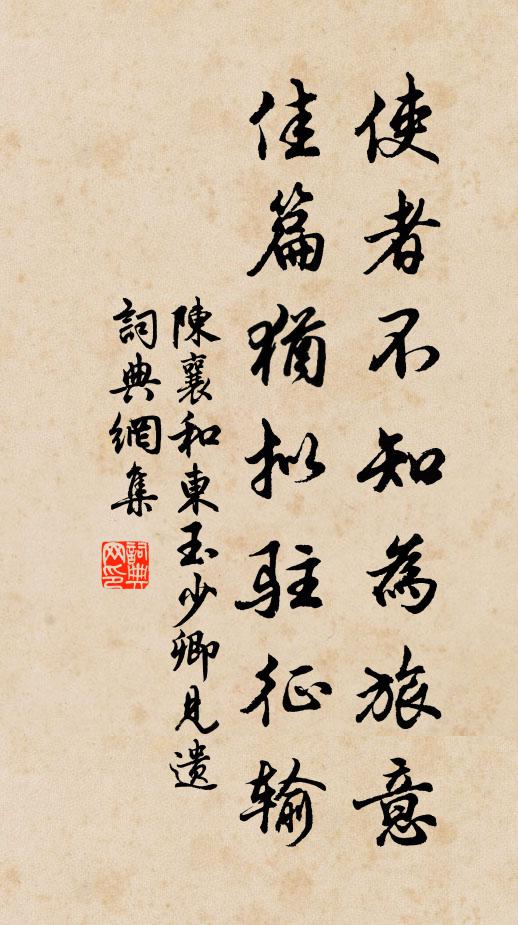 使者不知為旅意
佳篇猶拟駐征輸
陳襄和東玉少卿見遺
詞典網集
詞典网印